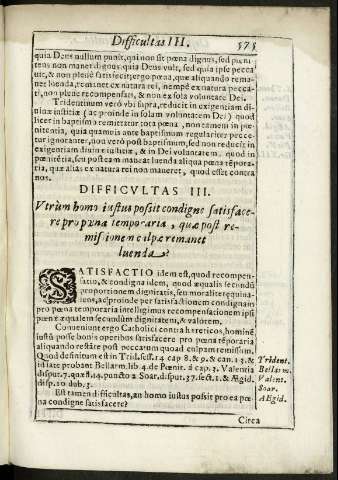 Difficultas III. 575
quia Deus nullum punit, qui non sit pœna dignus, sed pœni
tens non manet dignus, quia Deus vult, sed quia ipse pecca
uit, & non plenè satisfecit; ergo pœna, que aliquando rema-
net luenda, remanet ex natura rei, nempè ex natura pecca-
ti, non plenè recompensati, & non ex sola voluntate Dei.
Tridentinum verò vbi supra, reducit in exigentiam di-
uinæ iustitiæ (ac proinde in solam voluntatem Dei) quod
licet in baptismo remittatur tota pœna, non tamen in pœ-
nitentia, quia quamuis ante baptismum regulariter pecce-
tur ignoranter, non verò post baptismum, sed non reducit in
exigentiam diuinæ iustitiæ, & in Dei voluntatem, quod in
pœnitẽtia, seu post eam maneat luenda aliqua pœna tẽpora-
ria, quæ alias ex natura rei non maneret, quod esset contra
nos.
DIFFICVLTAS III.
Vtrùm homo iustus possit condignè satisface-
re pro pœna temporaria, quæ post re-
missionem culpæ remanet
luenda?
SATISFACTIO idem est, quod recompen-
satio, & condigna idem, quod æqualis secundũ
proportionem dignitatis, seu moralitèr æquiua-
lens, ac proinde per satisfactionem condignam
pro pœna temporaria intelligimus recompensationem ipsi
pœnæ æqualem secundùm dignitatem, & valorem.
Conueniunt ergo Catholici contra hæreticos, hominẽ
iustũ posse bonis operibus satisfacere pro pœna tẽporaria
aliquando restãte post peccatum quoad culpam remissum.
Quod definitum est in Trid. sess. 14. cap. 8. & 9. & can. 13. &
istatè probant Bellarm. lib. 4. de Pœnit. à cap. 3. Valentia
disput. 7. quæst. 14. puncto 2. Soar. disput. 37. sect. 1. & Ægid.
disp. 10. dub. 3.
Trident.
Bellarm.
Valent.
Soar.
AEgid.
Est tamen difficultas, an homo iustus possit pro ea pœ-
na condignè satisfacere?
Circa